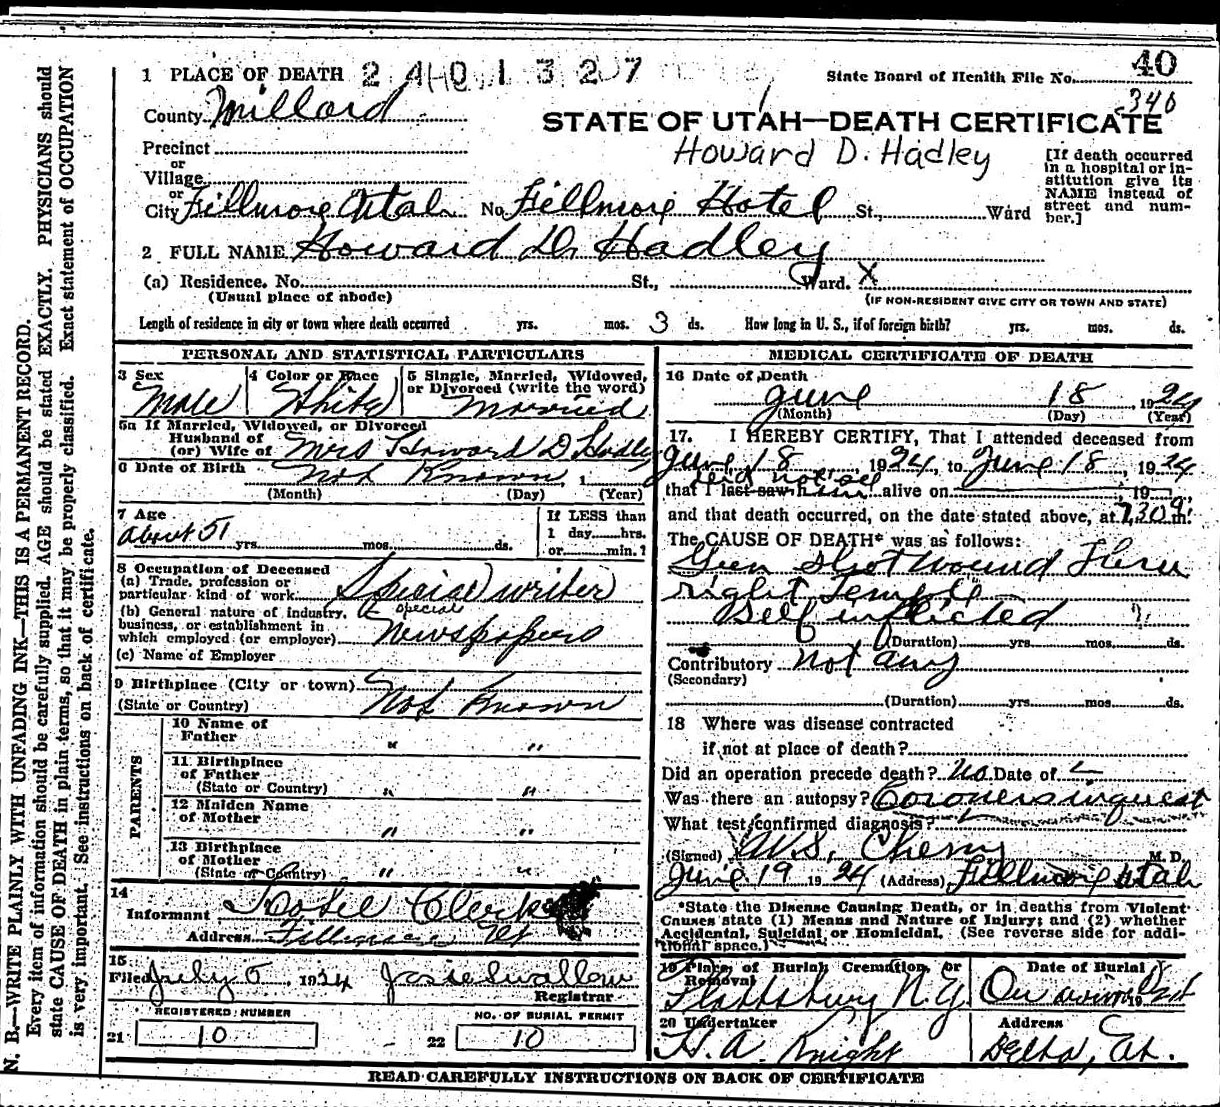 40
1 PLACE OF DEATH 2 4 0 1 3 2 7 State Board of Health File No.
340
County Millard
STATE OF UTAH—DEATH CERTIFICATE
Howard D. Hadley
Precinct
or
Village
or
City Fillmore Utah No. Fillmore Hotel St., Ward
[If death occurred
in a hospital or in-
stitution give its
NAME instead of
street and num-
ber.]
2 FULL NAME Howard D. Hadley
(a) Residence. No. St., Ward. X
(Usual place of abode) (IF NON-RESIDENT GIVE CITY OR TOWN AND STATE)
Length of residence in city or town where death occurred yrs. mos. 3 ds. How long in U. S., if of foreign birth? yrs. mos. ds.
PERSONAL AND STATISTICAL PARTICULARS
3 Sex
Male
4 Color or Race
White
5 Single, Married, Widowed,
or Divorced (write the word)
Married
5a If Married, Widowed, or Divorced
Husband of
(or) Wife of Mrs Howard D Hadley
6 Date of Birth Not Known, 1
(Month) (Day) (Year)
7 Age
about 51 yrs. mos. ds.
If LESS than
1 day hrs.
or min.?
8 Occupation of Deceased
(a) Trade, profession or
particular kind of work Special writer
special
(b) General nature of industry,
business, or establishment in
which employed (or employer) Newspapers
(c) Name of Employer
9 Birthplace (City or town)
(State or Country) Not Known
PARENTS
10 Name of
Father " "
11 Birthplace
of Father
(State or Country) " "
12 Maiden Name
of Mother " "
13 Birthplace
of Mother
(State or Country) " "
14
Informant Hotel Clerk
Address Fillmore Ut
15
Filed July 5, 1924 Josie Swallow
Registrar
REGISTERED NUMBER
21 10
NO. OF BURIAL PERMIT
22 10
MEDICAL CERTIFICATE OF DEATH
16 Date of Death
June 18, 1924
(Month) (Day) (Year)
17. I HEREBY CERTIFY, That I attended deceased from
June 18, 1924, to June 18, 1924
did not see
that I last saw him alive on , 19
and that death occurred, on the date stated above, at 7:30 a m.
The CAUSE OF DEATH* was as follows:
Gun Shot wound Thru
right Temple
Self inflicted
(Duration) yrs. mos. ds.
Contributory Not any
(Secondary)
(Duration) yrs. mos. ds.
18 Where was disease contracted
if not at place of death?
Did an operation precede death? No Date of
Was there an autopsy? Coroners inquest
What test confirmed diagnosis?
(Signed) M. D.
June 19 1924 (Address) Fillmore Utah
*State the Disease Causing Death, or in deaths from Violent
Causes state (1) Means and Nature of Injury; and (2) whether
Accidental, Suicidal or Homicidal. (See reverse side for addi-
tional space.)
19 Place of Burial Cremation, or
Removal
Plattsburg N.Y.
Date of Burial
On arrival
20 Undertaker
H. A. Knight
Address
Delta, Ut.
READ CAREFULLY INSTRUCTIONS ON BACK OF CERTIFICATE
N. B.—WRITE PLAINLY WITH UNFADING INK—THIS IS A PERMANENT RECORD.
Every item of information should be carefully supplied. AGE should be stated EXACTLY. PHYSICIANS should
state CAUSE OF DEATH in plain terms, so that it may be properly classified. Exact statement of OCCUPATION
is very important. See instructions on back of certificate.